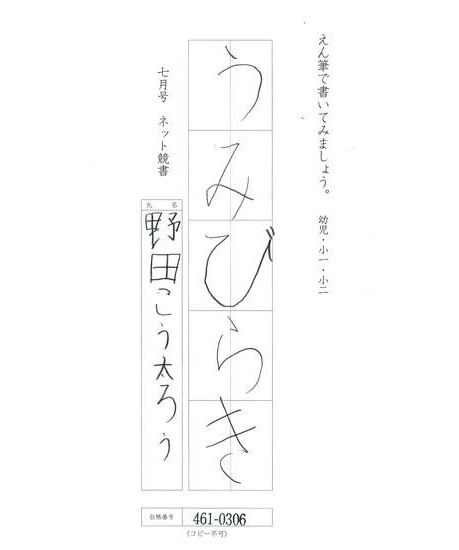 えん筆で書いてみましょう。 幼児・小一・小二
うみびらき
七月号 ネット競書
氏名
野田こう太ろう
台帳番号 461-0306
(コピー不可)